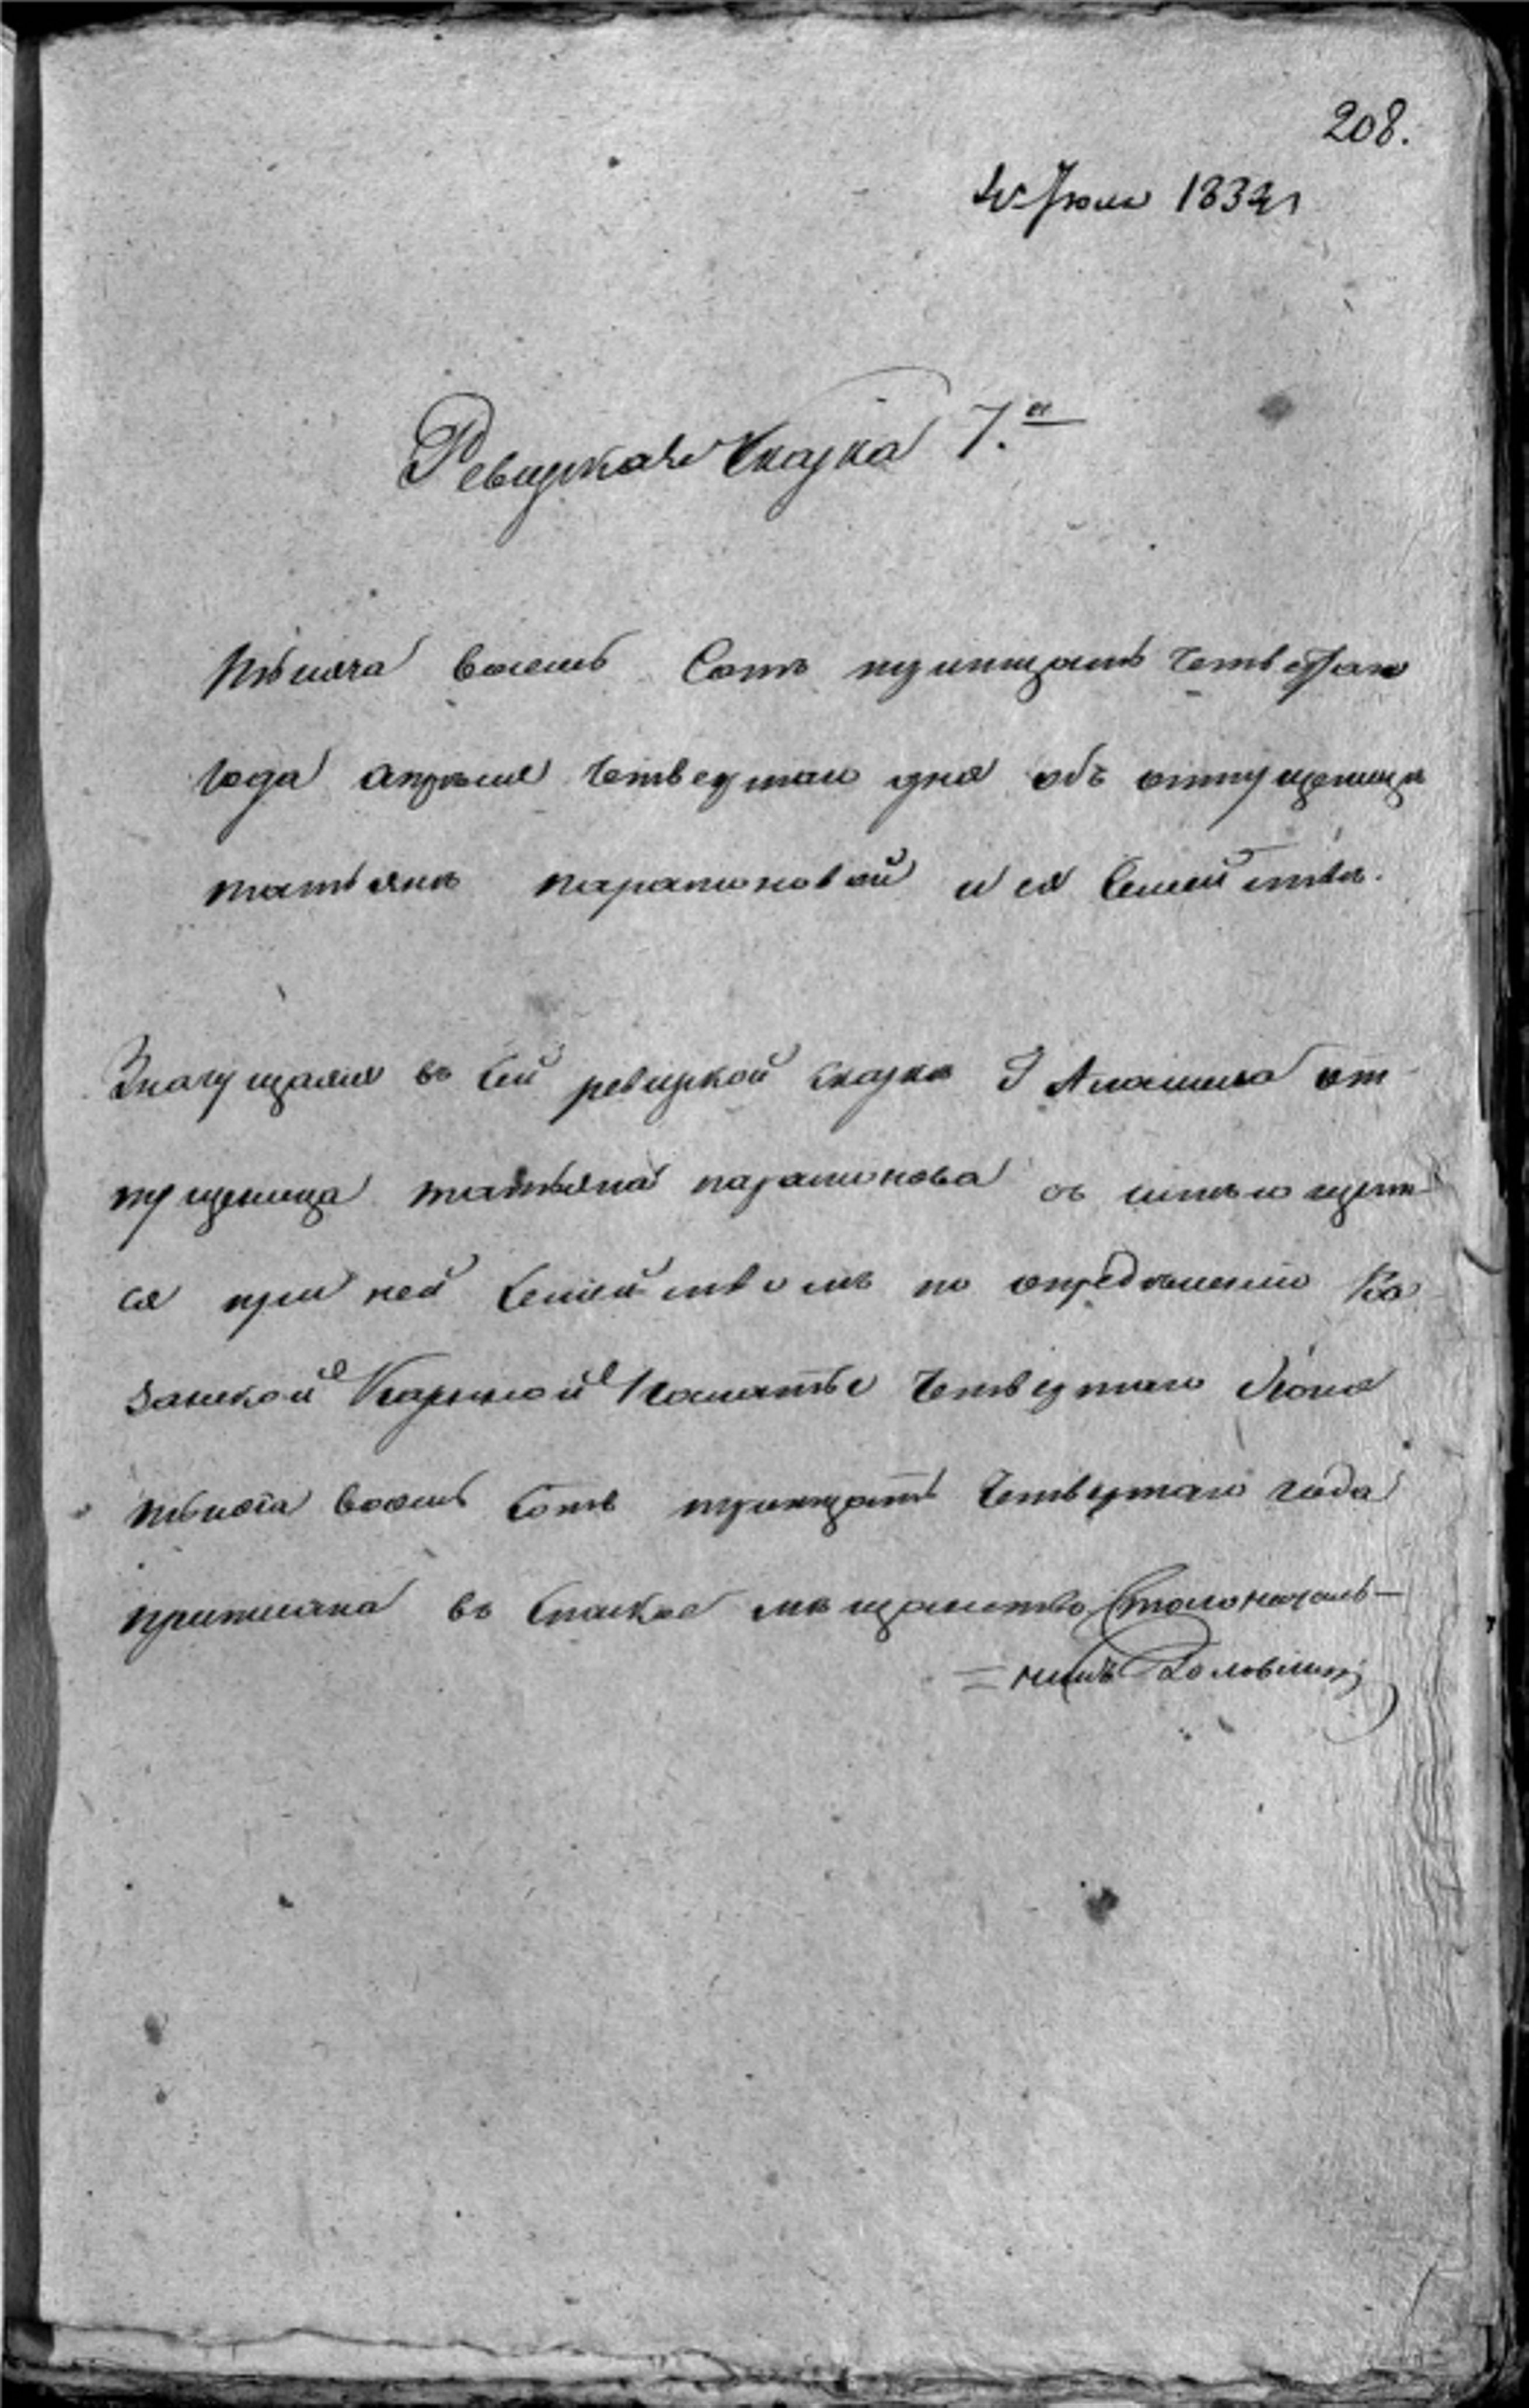 208.
Июля 1834
Ревижская Сказка 7.я
тысяча восемь сотъ тритцать четвертаго
года апреля четвертаго дня объ отпущенице
татьяне парамоновой и ея семействе.
Значущаяся въ сей ревижкой сказке Г отт
пущеница татьяна парамонова съ
ся при ней семействомъ по определению Ка
занской Казенной Полаты четвертаго Июня
тысяча восемь сотъ тритцать четвертаго года
приписана въ Спаское мещанство Столоначаль-
= никъ